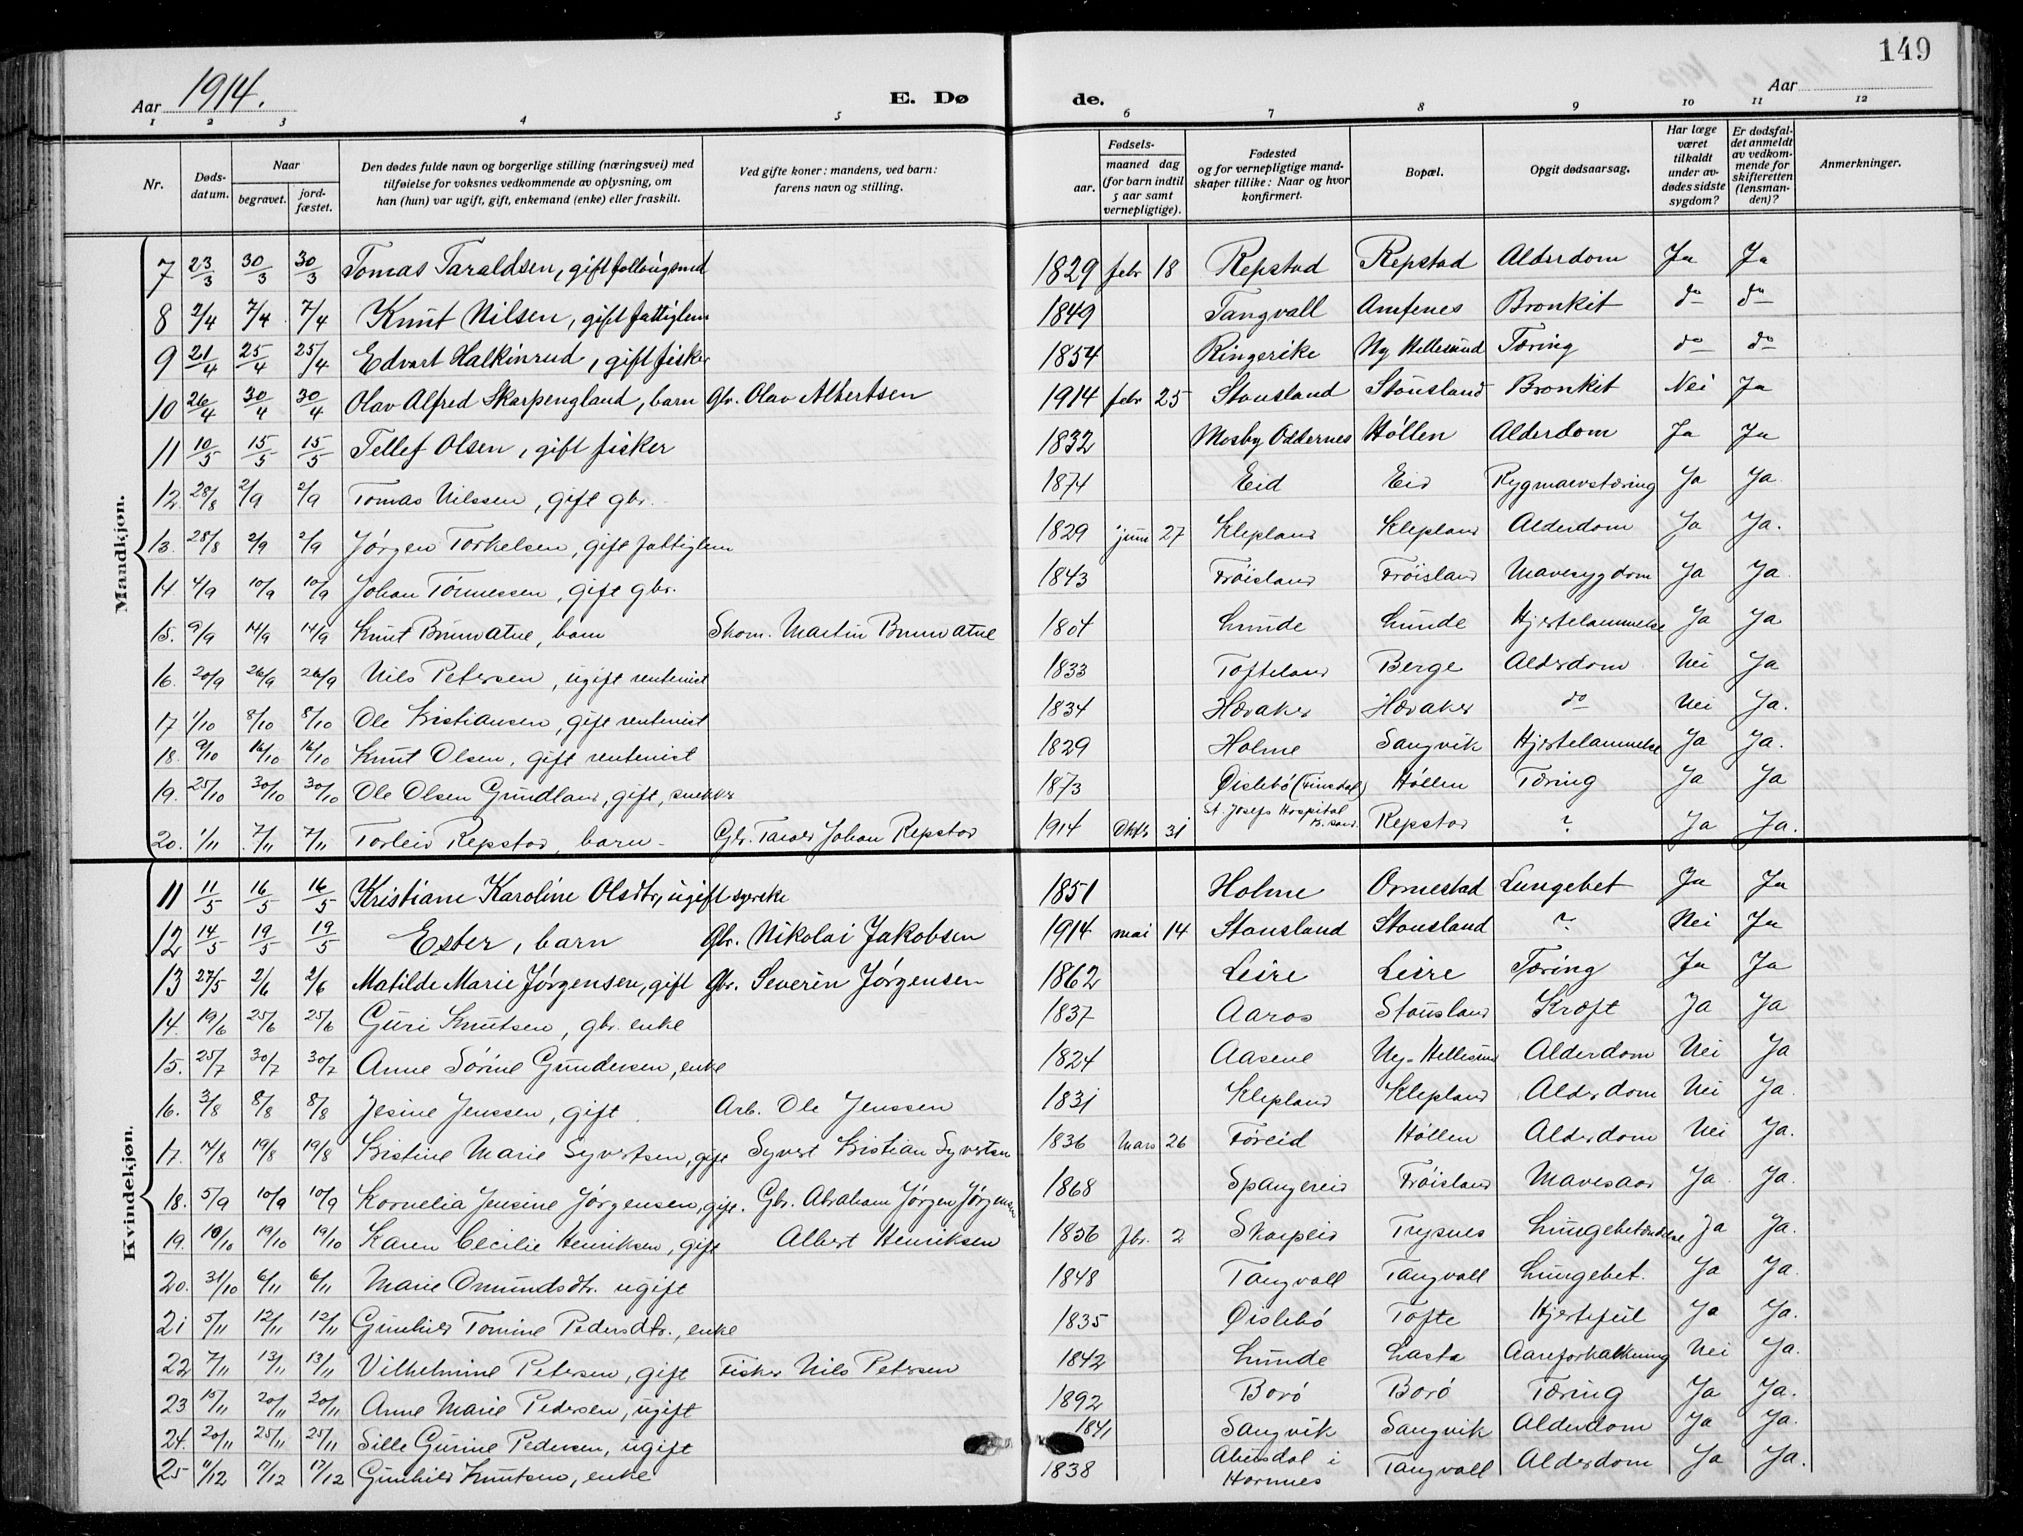 149
Aar 1914.
E. Dø de.
Aar
1 2 3 4 5 6 7 8 9 10 11 12
Nr.
Døds-datum.
Naar
begravet.
jord-fæstet.
Den dødes fulde navn og borgerlige stilling (næringsvei) med
tilføielse for voksnes vedkommende av oplysning, om
han (hun) var ugift, gift, enkemand (enke) eller fraskilt.
Ved gifte koner: mandens, ved barn:
farens navn og stilling.
Fødsels-
aar.
maaned dag
(for barn indtil
5 aar samt
vernepligtige).
Fødested
og for vernepligtige mand-
skaper tillike: Naar og hvor
konfirmert.
Bopæl.
Opgit dødsaarsag.
Har læge
været
tilkaldt
under av-
dødes sidste
sygdom?
Er dødsfal-
det anmeldt
av vedkom-
mende for
skifteretten
(lensman-
den)?
Anmerkninger.
Mandkjøn.
7 23/3 30/3 30/3 Tomas Taraldsen, gift 1829 febr 18 Repstad Repstad Alderdom Ja Ja
8 2/4 7/4 7/4 Knut Nilsen, gift fattiglem 1849 Tangvall Amfenes Bronkit do do
9 21/4 25/4 25/4 Edvart Halkinrud, gift fisker 1854 Ringerike Ny Hellesund Tæring do do
10 26/4 30/4 30/4 Olav Alfred Skarpengland, barn Gbr. Olav Albertsen 1914 febr 25 Stausland Stausland Bronkit Nei Ja
11 10/5 15/5 15/5 Tellef Olsen, gift fisker 1832 Mosby Oddernes Høllen Alderdom Ja Ja
12 28/8 2/9 2/9 Tomas Nilssen, gift gbr. 1874 Eid Eid Rygmarvstæring Ja Ja
13. 28/8 2/9 2/9 Jørgen Torkelsen, gift fattiglem 1829 juni 27 Klepland Klepland Alderdom Ja Ja.
14 4/9 10/9 10/9 Johan Tønnessen, gift gbr. 1843 Frøisland Frøisland Mavesygdom Ja Ja.
15. 9/9 14/9 14/9 Knut Brunvatne, barn Skom. Martin Brunvatne 1804 Lunde Lunde Hjertelammelse Ja Ja
16. 20/9 26/9 26/9 Nils Petersen, ugift rentenist 1833 Tofteland Berge Alderdom Nei Ja
17 1/10 8/10 8/10 Ole Kristiansen, gift rentenist 1834 Høvaker Høvaker do Nei Ja.
18. 9/10 16/10 16/10 Knut Olsen, gift rentenist 1829 Holme Sangvik Hjertelammelse Ja Ja.
19. 25/10 30/10 30/10 Ole Olsen Grundland, gift, snekker 1873 Øislebø (Finsdal) Høllen Tæring Ja Ja
20. 1/11 7/11 7/11 Torleiv Repstad, barn - Gbr. Tarald Johan Repstad 1914 Oktb 31 St. Josefs Hospital Kr.sand Repstad ? Ja Ja.
Kvindekjøn.
11 11/5 16/5 16/5 Kristiane Karoline Olsdtr, ugift syerske 1851 Holme Ormestad Lungebet Ja Ja
12 14/5 19/5 19/5 Ester, barn Gbr. Nikolai Jakobsen 1914 mai 14 Stausland Stausland ? Nei Ja
13 27/5 2/6 2/6 Matilde Marie Jørgensen, gift Gbr. Severin Jørgensen 1862 Leire Leire Tæring Ja Ja
14. 19/6 25/6 25/6 Guri Knutsen, gbr. enke 1837 Aaros Stausland Kræft Ja Ja
15. 25/7 30/7 30/7 Anne Sørine Gundersen, enke 1824 Aasene Ny-Hellesund Alderdom Nei Ja
16. 3/8 8/8 8/8 Jesine Jenssen, gift Arb. Ole Jenssen 1831 Klepland Klepland Alderdom Nei Ja.
17. 14/8 19/8 19/8 Kistine Marie Syvertsen, gift Syvert Kristian Syvertsen 1836 Mars 26 Føreid Høllen Alderdom Nei Ja.
18. 5/9 10/9 10/9 Kornelia Jensine Jørgensen, gift. Gbr. Abraham Jørgen Jørgensen 1868 Spangereid Frøisland Mavesaar Ja Ja.
19. 10/10 19/10 19/10 Karen Cecilie Henriksen, gift Albert Henriksen 1856 fbr. 2 Skarpeid Trysnes Lungebetændelse Ja Ja.
20. 31/10 6/11 6/11 Marie Omundsdtr. ugift 1848 Tangvall Tangvall Lungebet. Ja Ja.
21 5/11 12/11 12/11 Gunhild Tomine Pedersdtr., enke 1835 Øislebø Tofte Hjertefeil Ja Ja.
22 7/11 13/11 13/11 Vilhelmine Petersen, gift Fisker Nils Petersen 1842 Lunde Lasta Aareforkalkning Nei Ja.
23 15/11 20/11 20/11 Anne Marie Pedersen, ugift 1892 Borø Borø Tæring Ja Ja.
24. 20/11 25/11 25/11 Sille Gurine Pedersen, ugift 1841 Sangvik Sangvik Alderdom Ja Ja.
25 11/12 17/12 17/12 Gunhild Knutsen, enke 1838 i Hornnes Tangvall Alderdom Ja Ja.